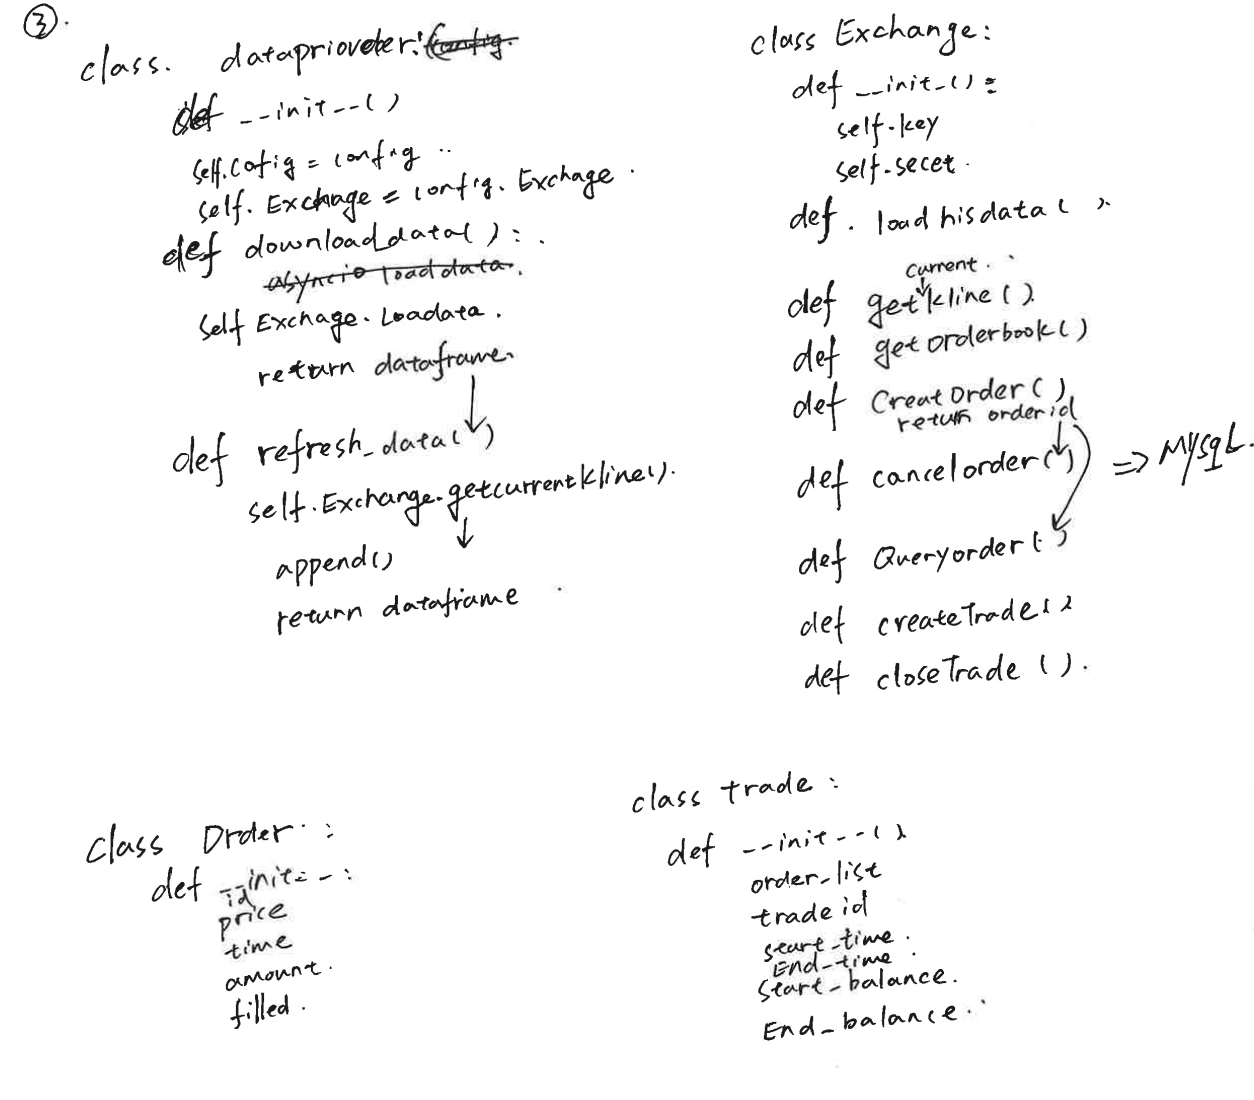 ③.
class. dataprioveder:
def __init__()
self.cofig = config
self.Exchage = config.Exchage.
def downloaddata():
asyncio loaddata.
self Exchage.Loadata.
return dataframe.
def refresh_data()
self.Exchange.getcurrentkline().
append()
return dataframe
class Exchange:
def __init_():
self.key
self.secet.
def. load hisdata()
current
def getkline()
def getorderbook()
def CreatOrder()
return orderid
def cancelorder() => MysqL.
def Queryorder()
def createTrade()
def closeTrade().
class Order:
def __init__:
id
price
time
amount.
filled.
class trade:
def __init__()
order_list
trade id
start_time.
End_time.
start_balance.
End_balance.